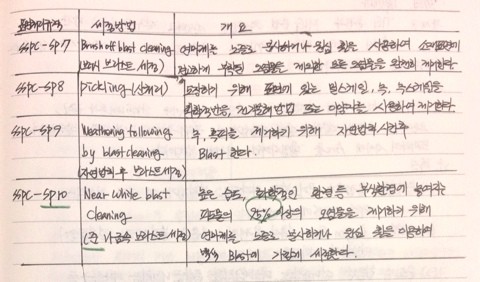 표면처리규격 세정방법 개요
SSPC-SP7 Brush off blast cleaning 연마제를 노즐로 분사하거나 원심 휠을 사용하여 소지표면에
(브러시 브라스트 세정) 견고하게 부착된 오염물을 제외한 모든 오염물을 완전히 제거한다.
SSPC-SP8 pickling (산처리) 도장하기 위해 표면에 있는 밀스케일, 녹, 녹스케일을
화학반응, 전기분해방법 또는 이 양자를 사용하여 제거한다.
SSPC-SP9 Weathering following 녹, 흑피를 제거하기 위해 자연방치시킨후
by blast cleaning Blast 한다.
(자연방치 후 브라스트세정)
SSPC-SP10 Near white blast 높은 습도, 화학적인 환경 등 부식환경에 놓여지는
Cleaning 95% 이상의 오염물을 제거하기 위해
(준 나금속 브라스트 세정) 연마제를 노즐로 분사하거나 원심 휠을 이용하여
백색 Blast에 가깝게 세정한다.